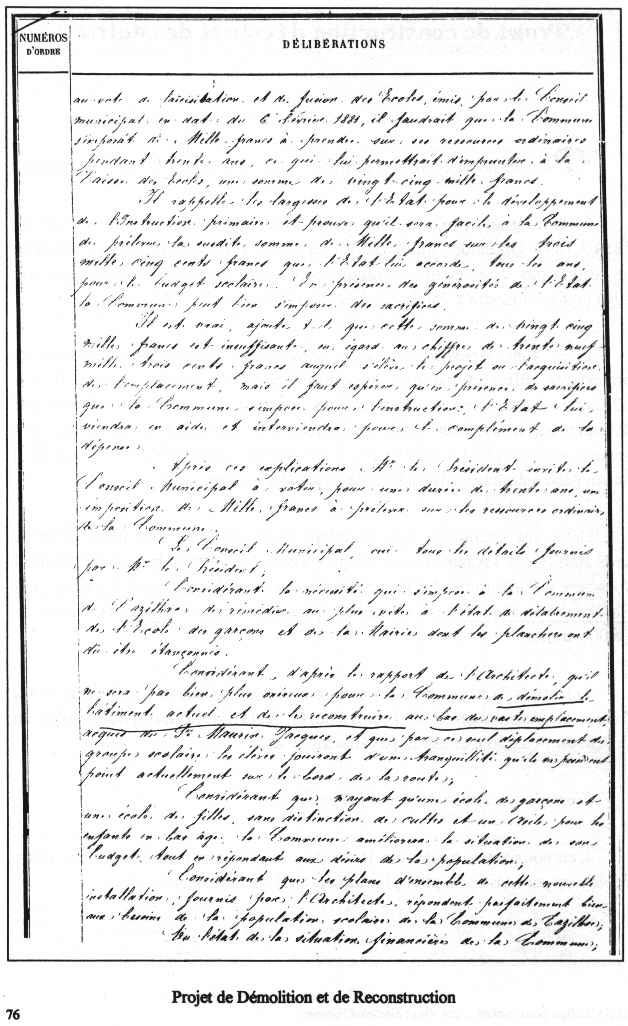 NUMÉROS
D'ORDRE
DÉLIBÉRATIONS
au vote de laïcisation et de fusion des Ecoles, émis par le Conseil
municipal en date du 6 février 1881, il faudrait que la Commune
s'imposât de Mille francs à prendre sur ses ressources ordinaires
pendant trente ans, ce qui lui permettrait d'emprunter à la
Caisse des Ecoles, une somme de vingt cinq mille francs.
Il rappelle les largesses de l'Etat pour le développement
de l'Instruction primaire et prouve qu'il sera facile à la Commune
de prélever la susdite somme de Mille francs sur les trois
mille cinq cents francs que l'Etat lui accorde, tous les ans,
pour le budget scolaire. En présence des générosités de l'Etat
la Commune peut bien s'imposer des sacrifices.
Il est vrai, ajoute t-il que cette somme de vingt cinq
mille francs est insuffisante, eu égard au chiffre de trente neuf
mille trois cents francs auquel s'élève le projet ou l'acquisition
de l'emplacement, mais il faut espérer qu'en présence des sacrifices
que la Commune s'impose pour l'instruction, l'Etat lui
viendra en aide et interviendra pour le complément de la
dépense.
Après ces explications Mr le Président invite le
Conseil Municipal à voter, pour une durée de trente ans, une
imposition de Mille francs à prélever sur les ressources ordinaires
de la Commune.
Le Conseil Municipal, ouï tous les détails fournis
par Mr le Président,
Considérant la nécessité qui s'impose à la Commune
de Cazilhac de remédier au plus vite à l'état de délabrement
de l'Ecole des garçons et de la Mairie dont les planchers ont
dû être étançonnés.
Considérant, d'après le rapport de l'Architecte, qu'il
ne sera pas bien plus onéreux pour la Commune de démolir le
bâtiment actuel et de le reconstruire au bas du vaste emplacement
acquis du Sr Maurin Jacques, et que par ce seul déplacement du
groupe scolaire les élèves jouiront d'une tranquillité qu'ils n'ont
point actuellement sur le bord de la route;
Considérant que n'ayant qu'une école de garçons et
une école de filles, sans distinction de cultes et un Asile pour les
enfants en bas âge la Commune améliorera la situation de son
budget, tout en répondant aux désirs de la population;
Considérant que les plans d'ensemble de cette nouvelle
installation, fournis par l'Architecte, répondent parfaitement bien
aux besoins de la population scolaire de la Commune de
Vu l'état de la situation financière de la Commune;
Projet de Démolition et de Reconstruction
76